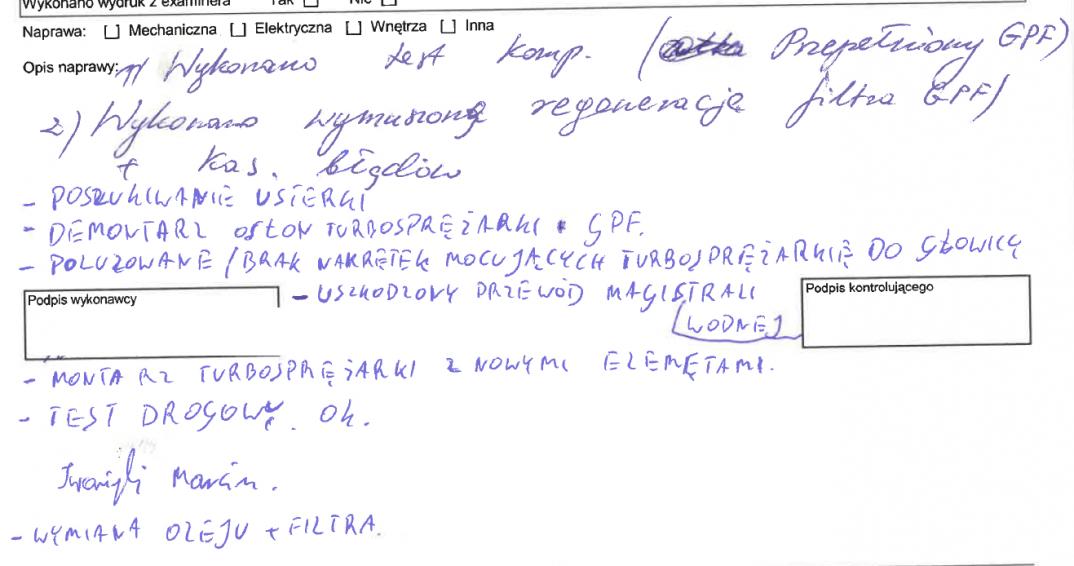 Wykonano wydruk z examinera Tak ☐ Nie ☐
Naprawa: ☐ Mechaniczna ☐ Elektryczna ☐ Wnętrza ☐ Inna
Opis naprawy: 1) Wykonano test komp. ( Przepełniony GPF)
2) Wykonano wymuszoną regenerację filtra GPF)
+ kas. błędów
- POSZUKIWANIE USTERKI
- DEMONTARZ OSŁON TURBOSPRĘŻARKI • GPF.
- POLUZOWANE / BRAK NAKRĘTEK MOCUJĄCYCH TURBOSPRĘŻARKIĘ DO GŁOWICY
Podpis wykonawcy
- USZKODZOVY PRZEWÓD MAGISTRALI
WODNEJ
Podpis kontrolującego
- MONTARZ TURBOSPRĘŻARKI Z NOWYMI ELEMĘTAMI.
- TEST DROGOWY. Ok.
Marcin.
- WYMIANA OLEJU + FILTRA.